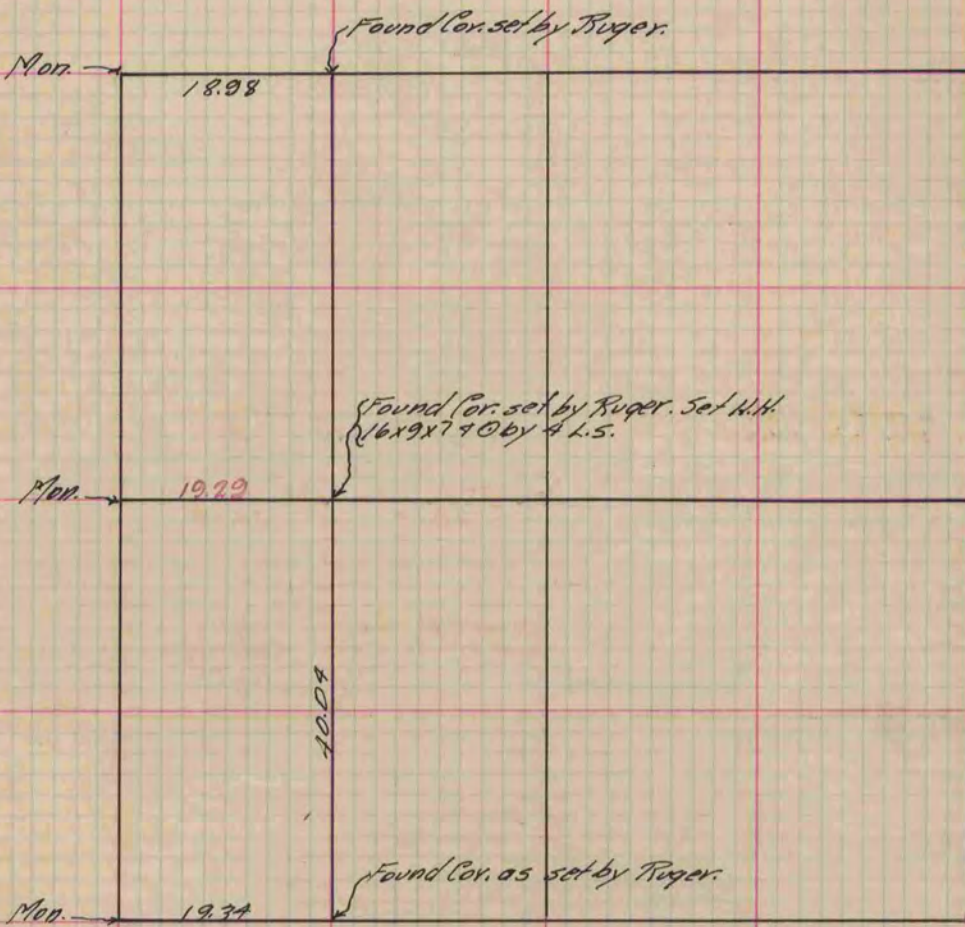 Found Cor. set by Ruger.
Mon.
18.98
Found Cor. set by Ruger. Set H.H.
16x9x7 & ⊙ by 4 L.S.
Mon.
19.29
40.04
Found Cor. as set by Ruger.
Mon.
19.34